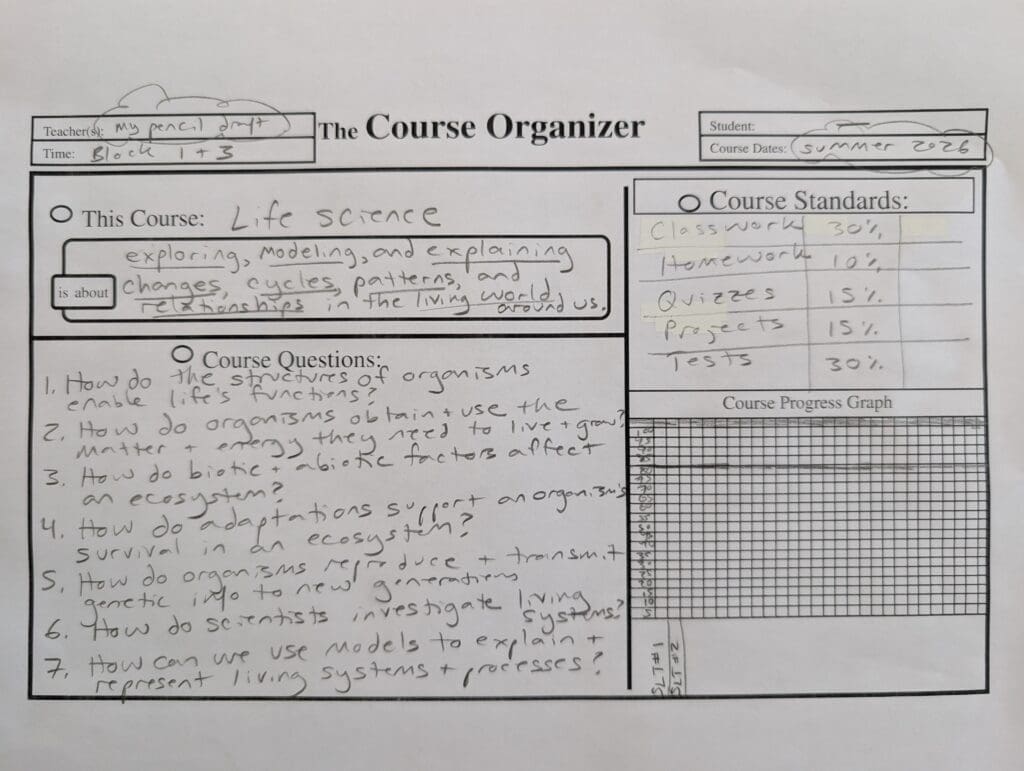 Teacher(s): My pencil draft
Time: Block 1 + 3
The Course Organizer
Student:
Course Dates: summer 2026
This Course: Life science
is about
exploring, modeling, and explaining
changes, cycles, patterns, and
relationships in the living world
around us.
Course Questions:
1. How do the structures of organisms
enable life's functions?
2. How do organisms obtain + use the
matter + energy they need to live + grow?
3. How do biotic + abiotic factors affect
an ecosystem?
4. How do adaptations support an organism's
survival in an ecosystem?
5. How do organisms reproduce + transmit
genetic info to new generations
6. How do scientists investigate living
systems?
7. How can we use models to explain +
represent living systems + processes?
Course Standards:
Classwork 30%
Homework 10%
Quizzes 15%
Projects 15%
Tests 30%
Course Progress Graph
SLT #1
SLT #2